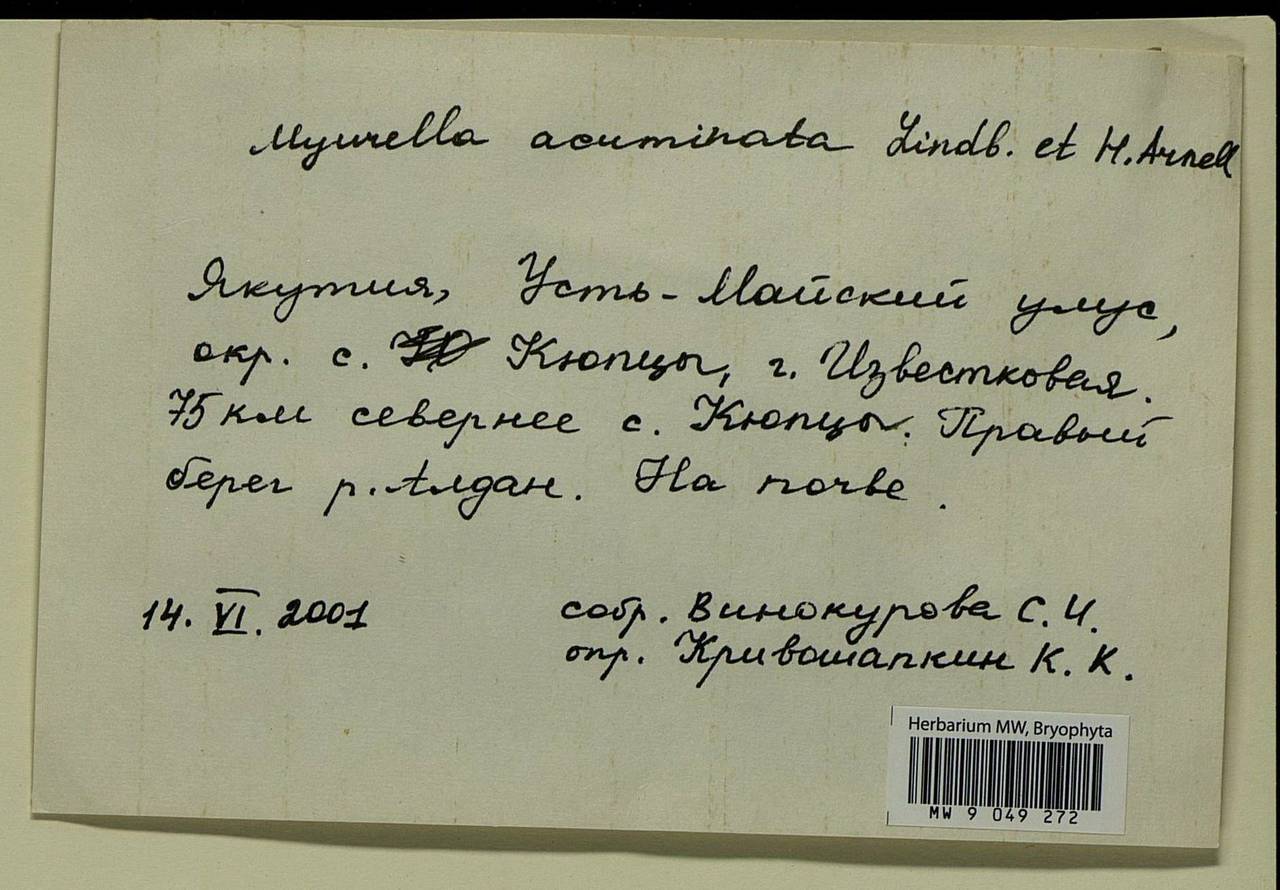 Myurella acuminata Lindb. et H. Arnell
Якутия, Усть-Майский улус,
окр. с. Кюпцы, г. Известковая.
75 км севернее с. Кюпцы. Правый
берег р. Алдан. На почве.
14. VI. 2001
собр. Винокурова С. И.
опр. Кривошапкин К. К.
Herbarium MW, Bryophyta
MW 9 049 272